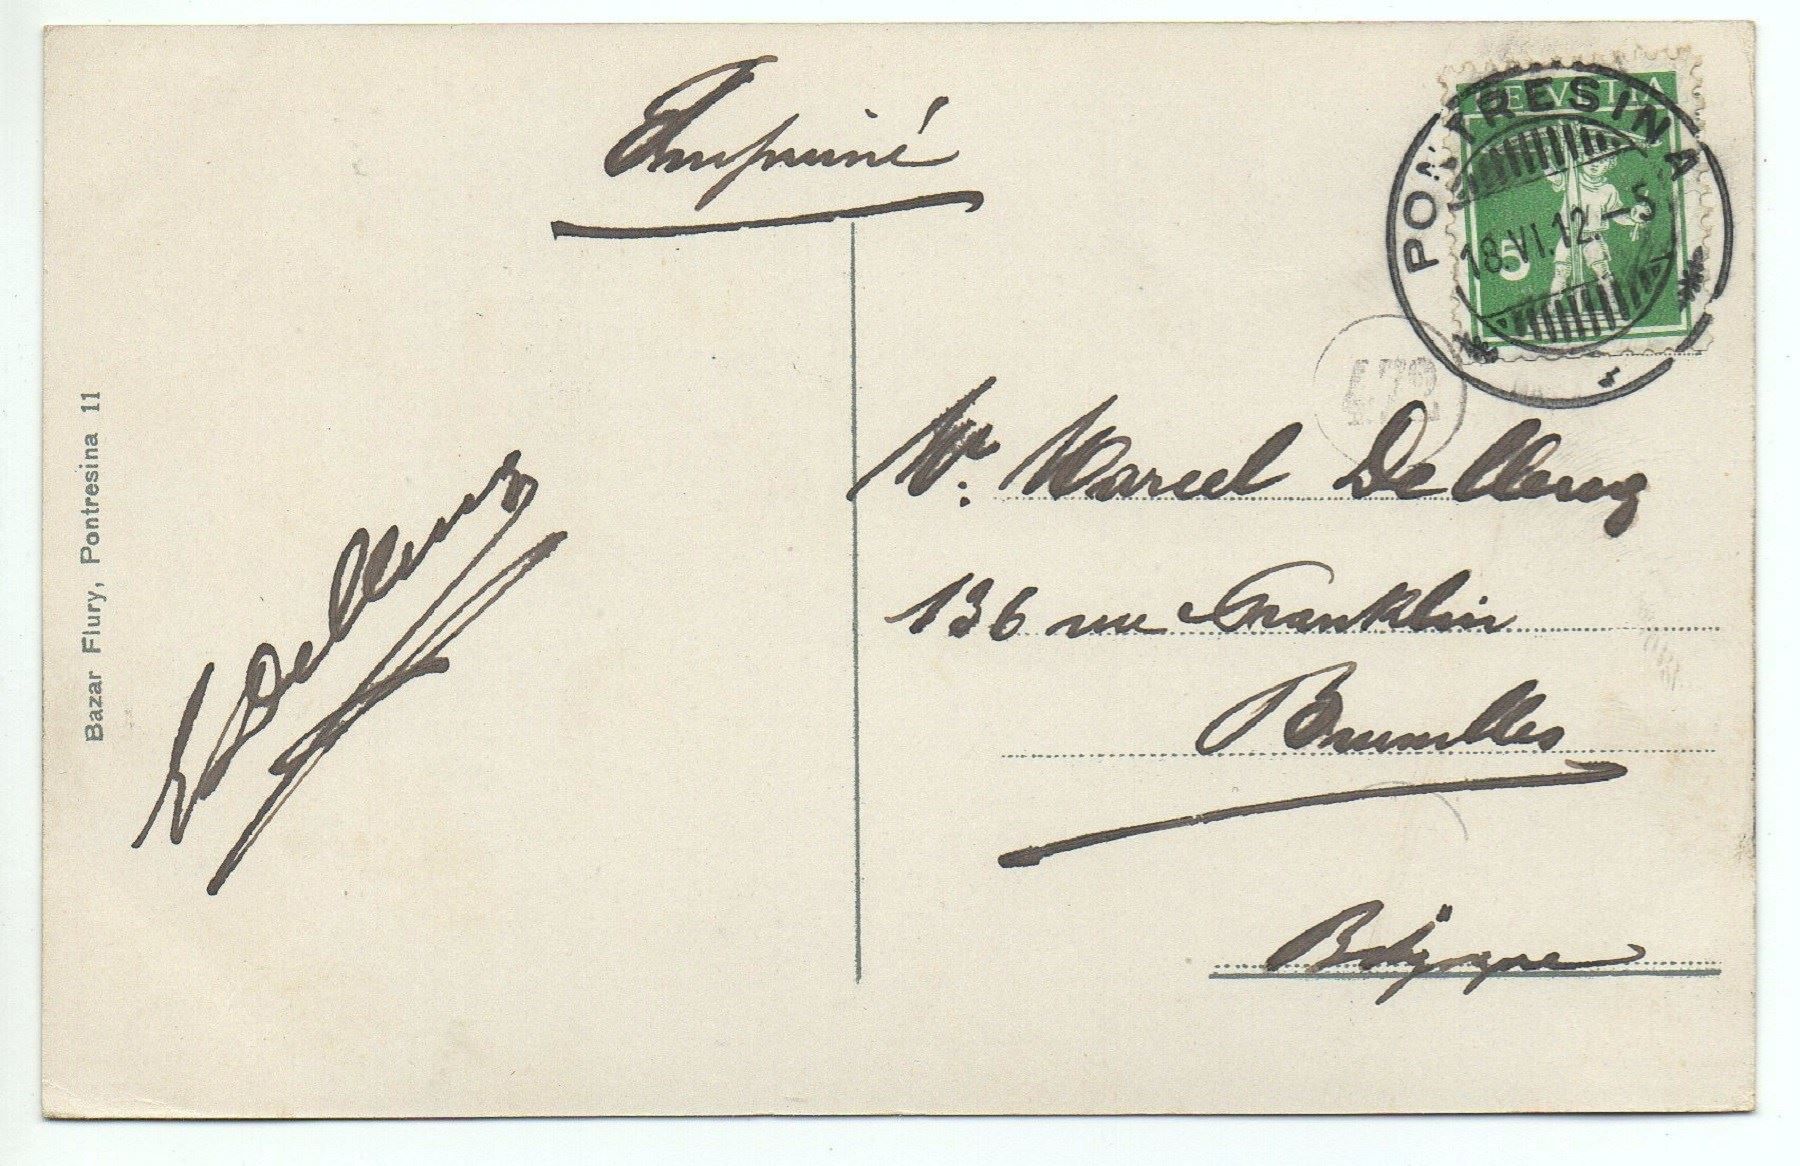 Imprimé
HELVETIA
5
PONTRESINA
18.VI.12.-5
472
Mr. Marcel
136 rue Franklin
Bruxelles
Belgique
Bazar Flury, Pontresina 11